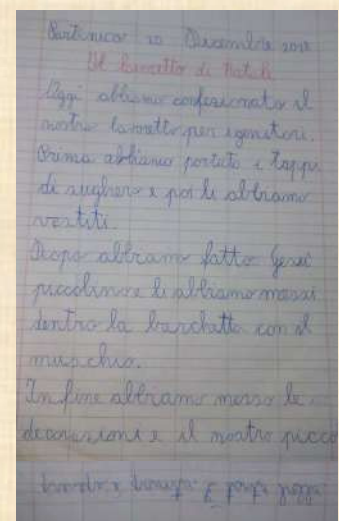 Partinico 20 Dicembre 2018
Il lavoretto di Natale
Oggi abbiamo confezionato il
nostro lavoretto per i genitori.
Prima abbiamo portato i tappi
di sughero e poi li abbiamo
vestiti.
Dopo abbiamo fatto Gesù
piccolino e li abbiamo messi
dentro la barchetta con il
muschio.
In fine abbiamo messo le
decorazioni e il nostro picco